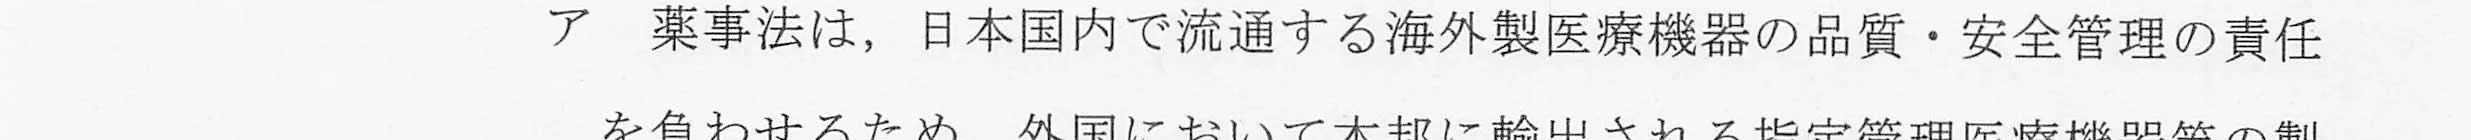 ア　薬事法は，日本国内で流通する海外製医療機器の品質・安全管理の責任
を負わせるため，外国において本邦に輸出される指定管理医療機器等の製